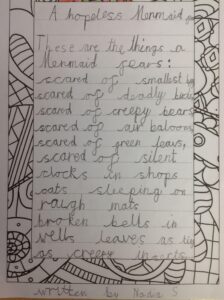 A hopeless Mermaid
These are the things a
Mermaid fears:
scared of smallest
scared of deadly
scared of creepy bears
scared of air baloons,
scared of green
scared of silent
clocks in shops
cats sleeping on
rough mats
broken bells in
wells leaves as
as creepy insects
written by Nadia S